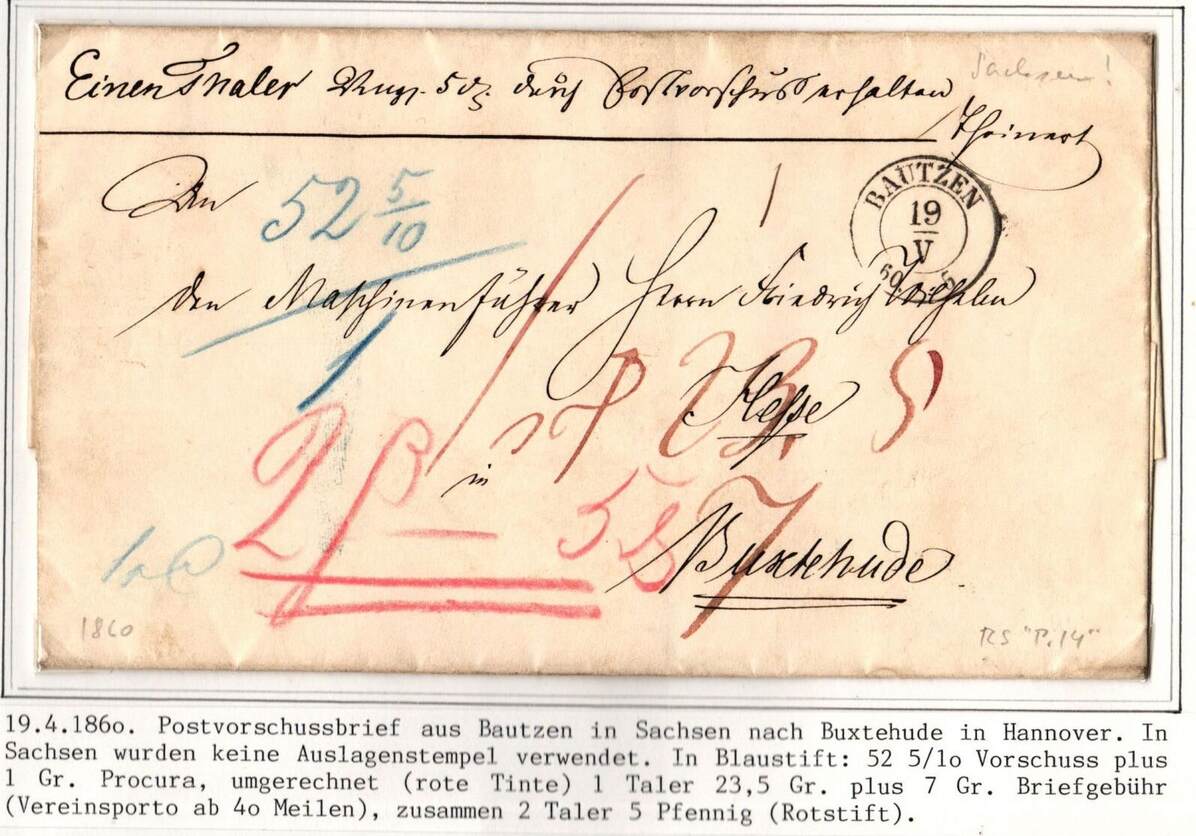 Sachsen!
Einen Thaler Ngr. 5 d. durch Postvorschuss erhalten
Theinert
An
52 5/10
BAUTZEN
19
V
60
5
den Maschinenführer Herrn Friedrich Wilhelm
1
Hesse
in
2 β — 5 δ
7
Buxtehude
1860
RS "P. 14"
19.4.186o. Postvorschussbrief aus Bautzen in Sachsen nach Buxtehude in Hannover. In
Sachsen wurden keine Auslagenstempel verwendet. In Blaustift: 52 5/1o Vorschuss plus
1 Gr. Procura, umgerechnet (rote Tinte) 1 Taler 23,5 Gr. plus 7 Gr. Briefgebühr
(Vereinsporto ab 4o Meilen), zusammen 2 Taler 5 Pfennig (Rotstift).